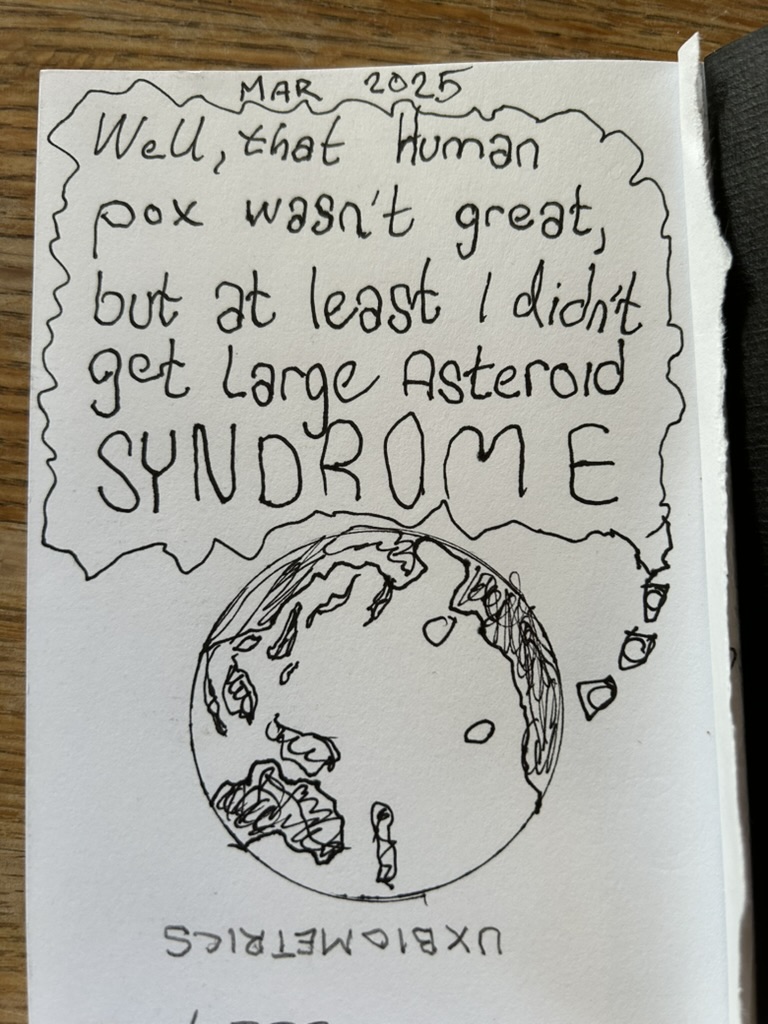 MAR 2025
Well, that Human
pox wasn't great,
but at least I didn't
get Large Asteroid
SYNDROME
UXBIOMETRICS